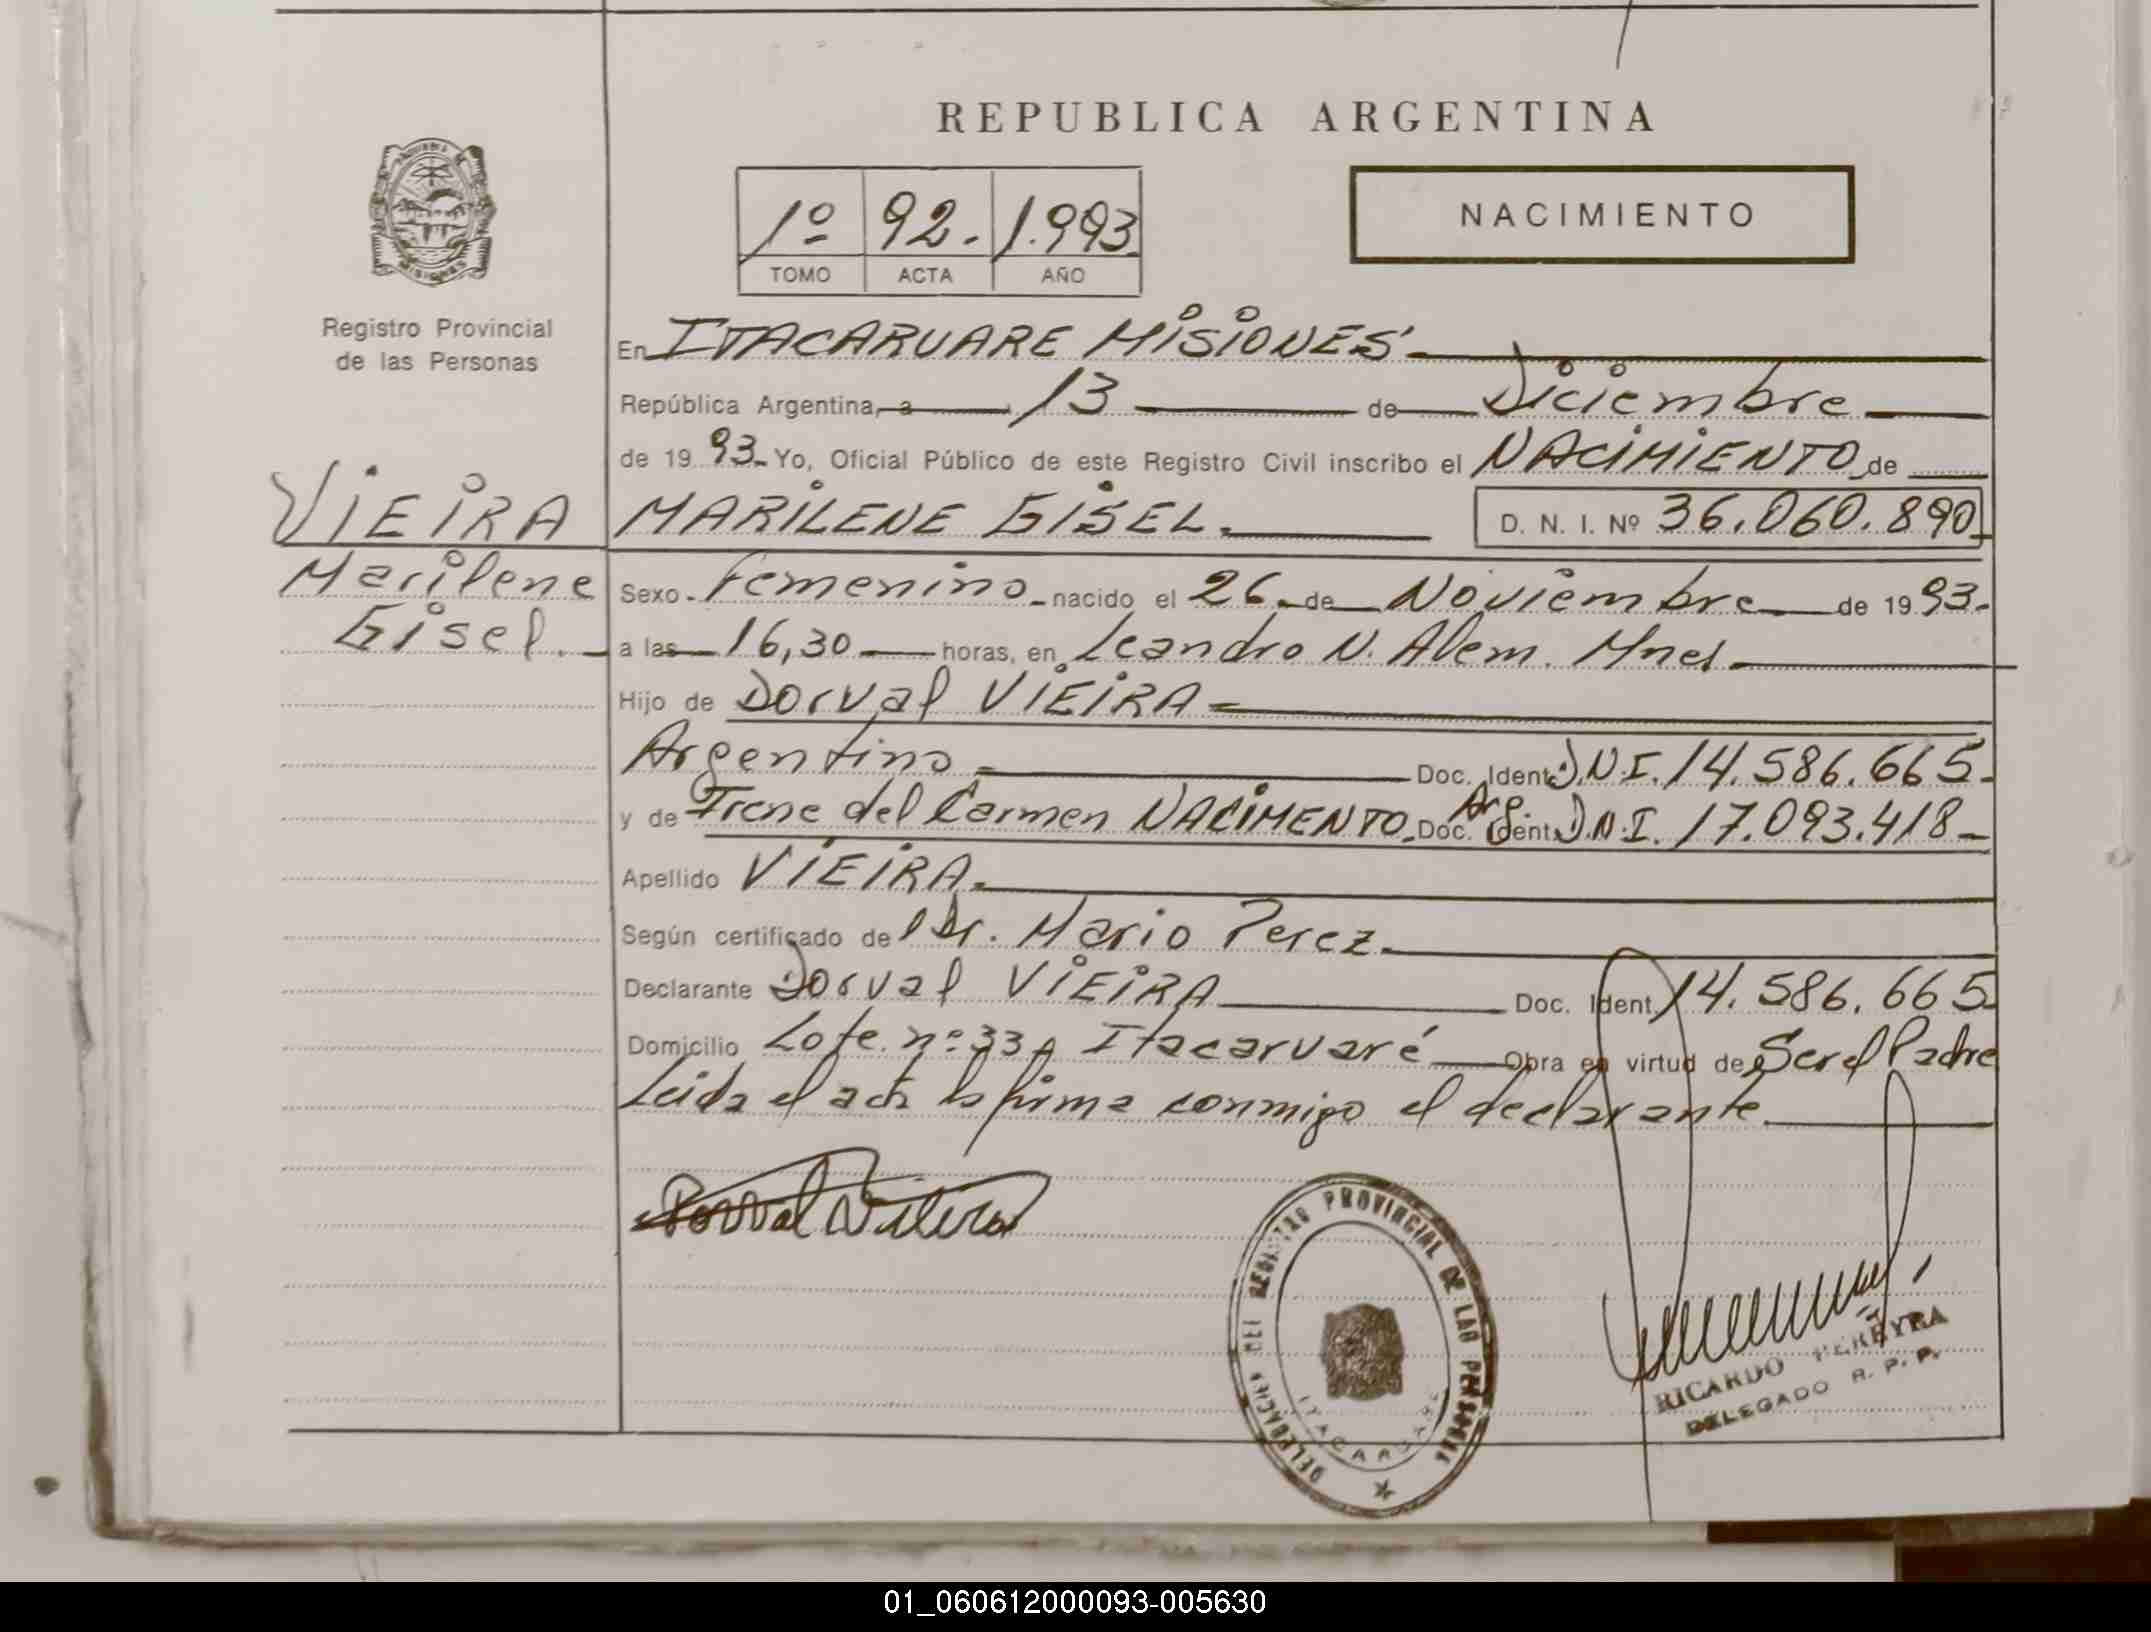 REPUBLICA ARGENTINA
MISIONES
Registro Provincial
de las Personas
1º 92. 1.993
TOMO ACTA AÑO
NACIMIENTO
En ITACARUARE MISIONES
República Argentina, a 13 de Diciembre
de 19 93 Yo, Oficial Público de este Registro Civil inscribo el NACIMIENTO de
VIEIRA
Marilene
Gisel.
MARILENE GISEL. D. N. I. Nº 36.060.890
Sexo Femenino nacido el 26 de Noviembre de 19 93.
a las 16,30 horas, en Leandro N. Alem. Mnes
Hijo de Dorval VIEIRA
Argentino Doc. Ident. D.N.I. 14.586.665.
y de Irene del Carmen NACIMENTO. Arg. Doc. Ident. D.N.I. 17.093.418
Apellido VIEIRA.
Según certificado del Dr. Mario Perez.
Declarante Dorval VIEIRA Doc. Ident. 14.586.665
Domicilio Lote nº 33 Itacaruaré Obra en virtud de Ser el Padre
Leida el acta la firma conmigo el declarante.
DELEGACION DEL REGISTRO PROVINCIAL DE LAS PERSONAS
ITACARUARE
RICARDO PEREYRA
DELEGADO R. P. P.
01_060612000093-005630